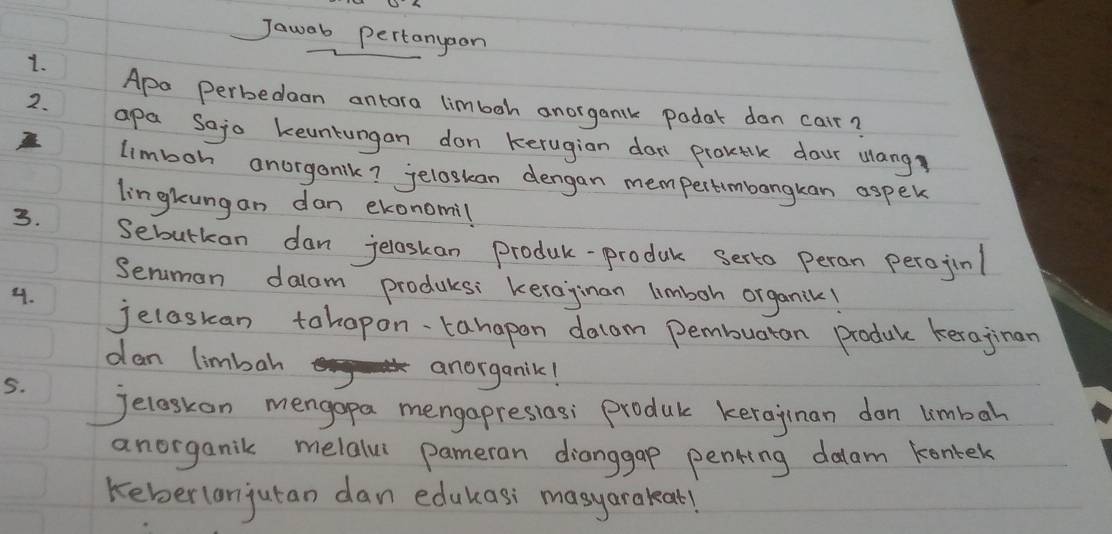 Jawab Pertanyaan
1. Apa Perbedaan antara limbah anorganik padat dan cair?
2. apa saja keuntungan dan kerugian dari praktik daur ulang
limbah anorganik? jelaskan dengan mempertimbangkan aspek
lingkungan dan ekonomi!
3. Sebutkan dan jelaskan produk-produk serta peran perajin/
Seniman dalam produksi kerajinan limbah organik!
4. jelaskan tahapan-tahapan dalam pembuatan produk kerajinan
dan limbah anorganik!
5. jelaskan mengapa mengapresiasi produk kerajinan dan limbah
anorganik melalui pameran dianggap penting dalam kontek
keberlanjutan dan edukasi masyarakat!